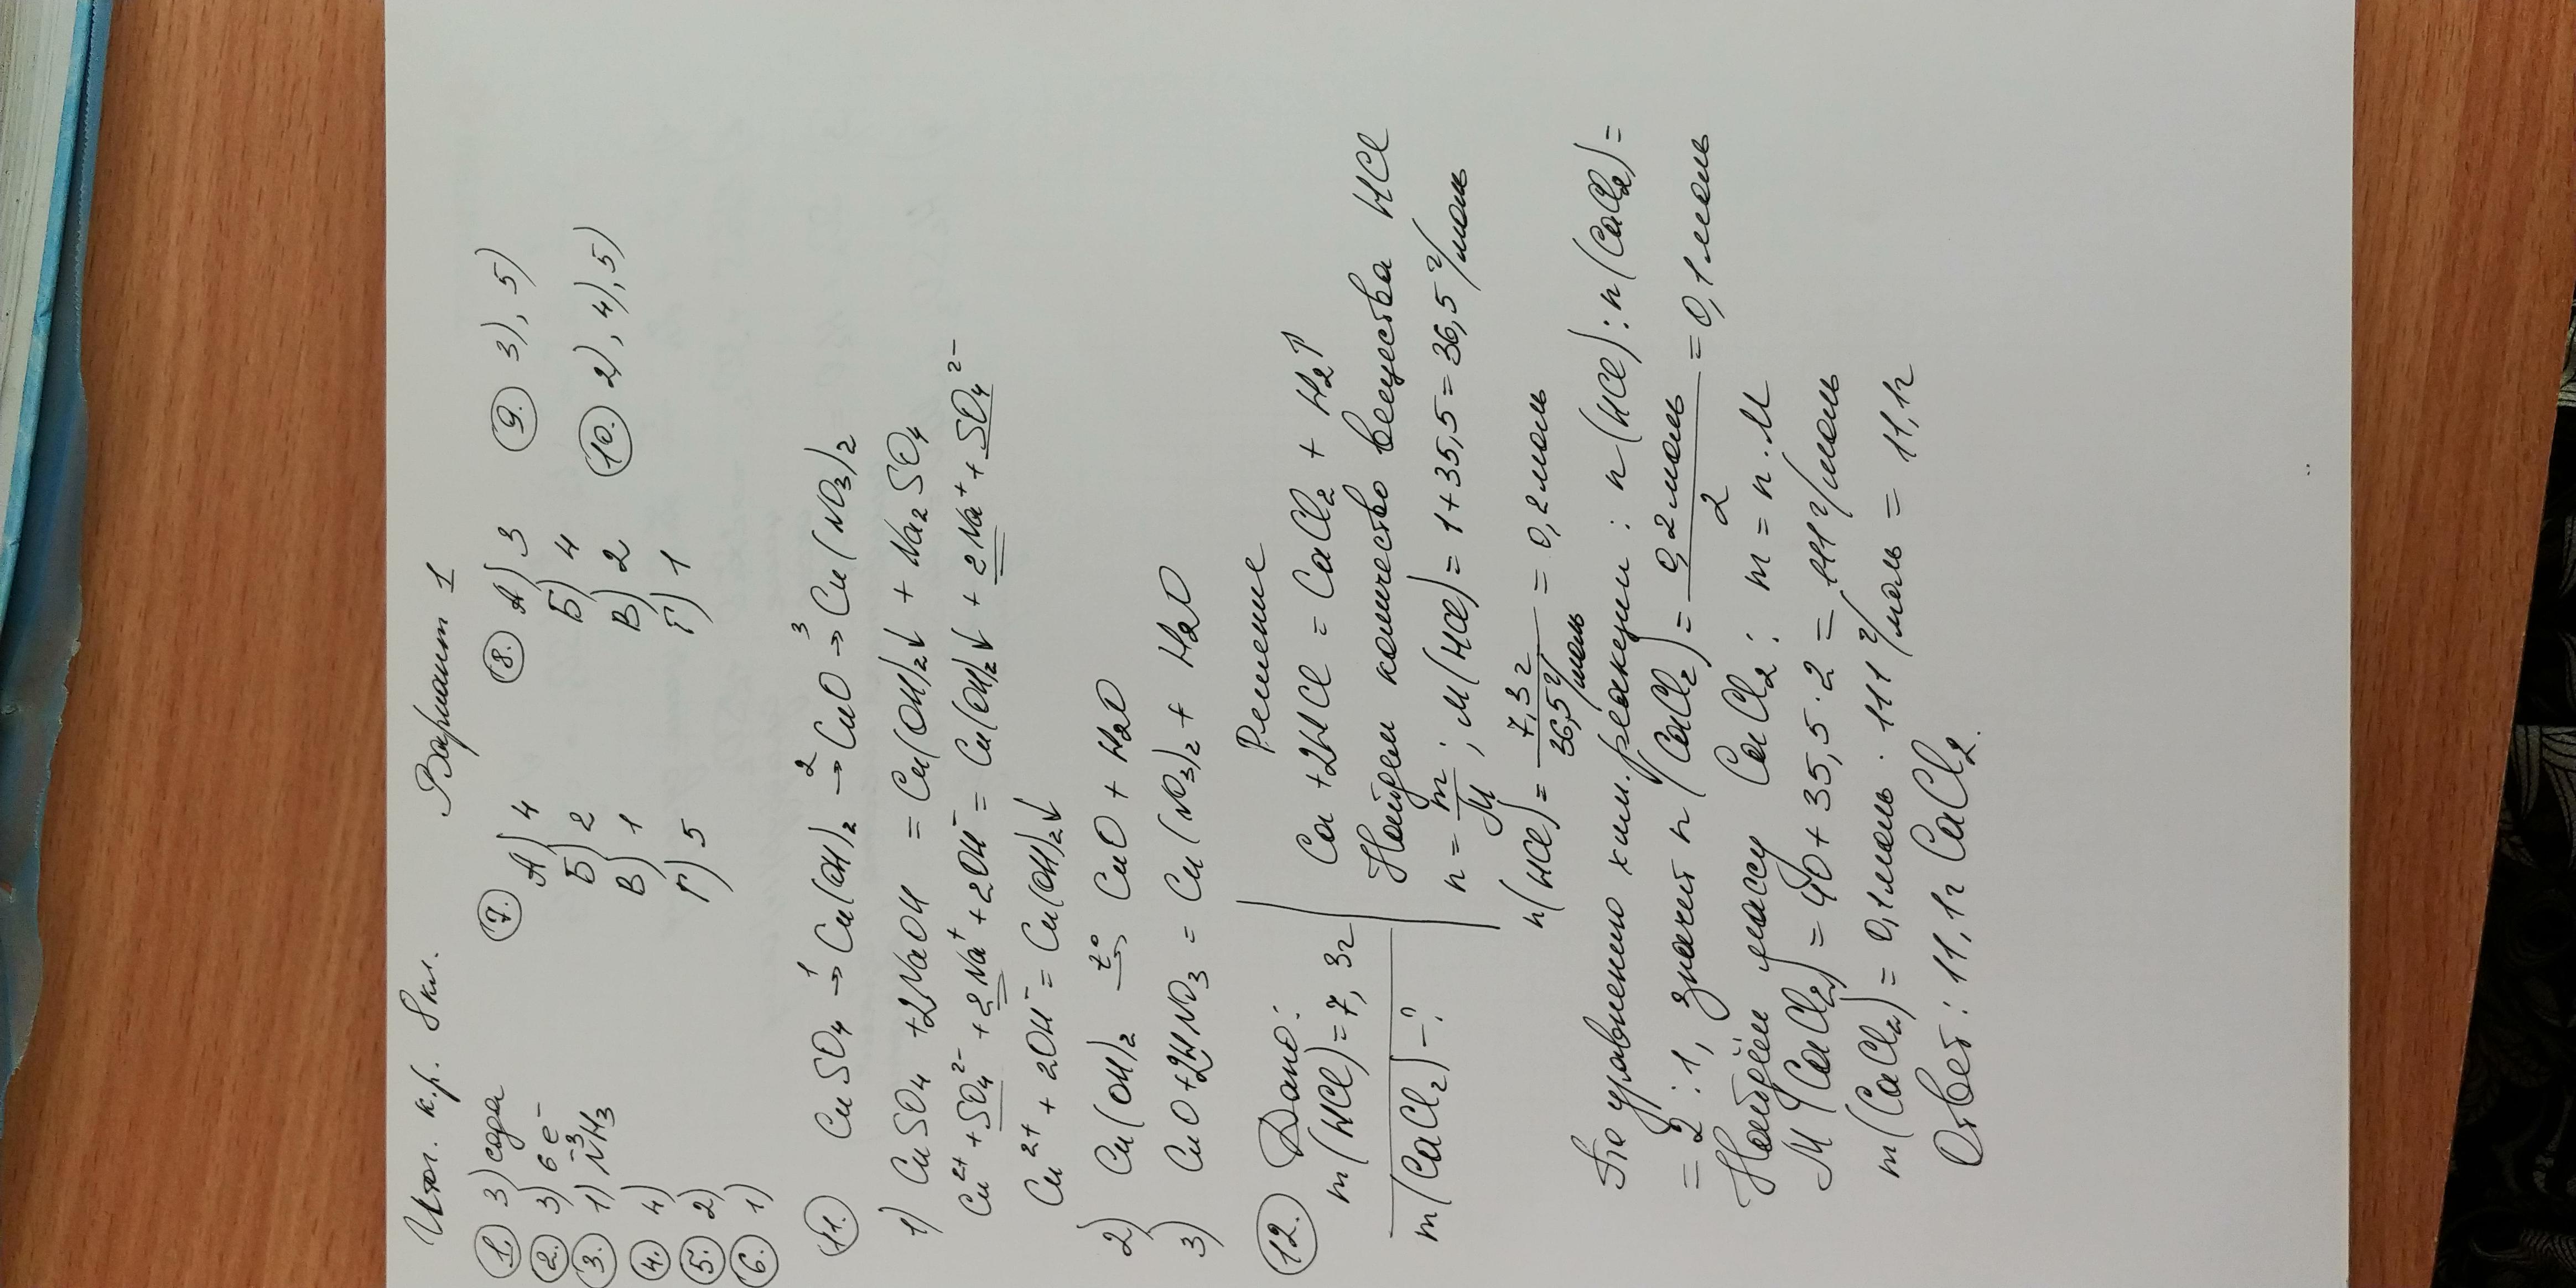 Итог. к.р. 8 кл. Вариант 1
1. 3) сода
2. 3) 6 e⁻
3. 1) N⁻³H₃
4. 4)
5. 2)
6. 1)
7. А) 4
Б) 2
В) 1
Г) 5
8. А) 3
Б) 4
В) 2
Г) 1
9. 3), 5)
10. 2), 4), 5)
11. CuSO₄ →¹ Cu(OH)₂ →² CuO →³ Cu(NO₃)₂
1) CuSO₄ + 2NaOH = Cu(OH)₂↓ + Na₂SO₄
Cu²⁺ + SO₄²⁻ + 2Na⁺ + 2OH⁻ = Cu(OH)₂↓ + 2Na⁺ + SO₄²⁻
Cu²⁺ + 2OH⁻ = Cu(OH)₂↓
2) Cu(OH)₂ →t° CuO + H₂O
3) CuO + 2HNO₃ = Cu(NO₃)₂ + H₂O
12. Дано:
m(HCl) = 7,3г
m(CaCl₂) – ?
Решение
Ca + 2HCl = CaCl₂ + H₂↑
Найдем количество вещества HCl
n = m/M ; M(HCl) = 1 + 35,5 = 36,5 г/моль
n(HCl) = 7,3г / 36,5 г/моль = 0,2 моль
По уравнению хим. реакции : n(HCl) : n(CaCl₂) =
= 2 : 1, значит n(CaCl₂) = 0,2 моль / 2 = 0,1 моль
Найдём массу CaCl₂ : m = n · M
M(CaCl₂) = 40 + 35,5 · 2 = 111 г/моль
m(CaCl₂) = 0,1 моль · 111 г/моль = 11,1г
Ответ : 11,1г CaCl₂.